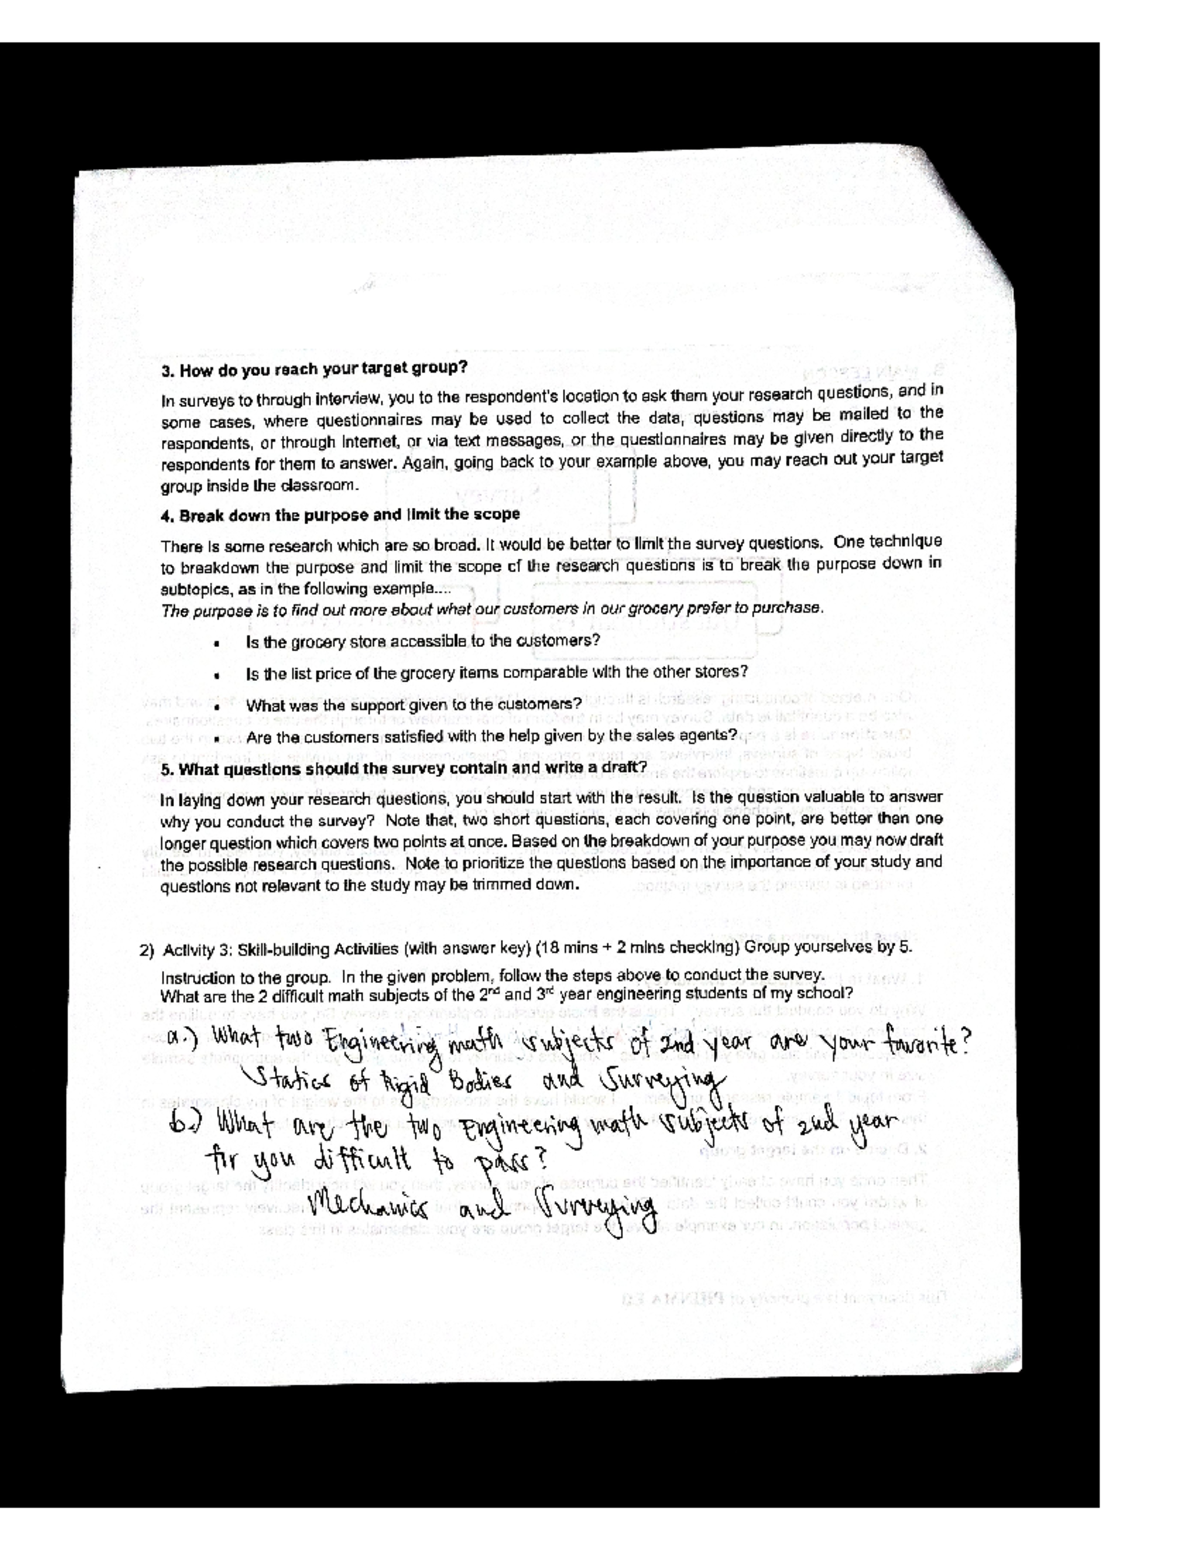 3. How do you reach your target group?
In surveys to through interview, you to the respondent's location to ask them your research questions, and in
some cases, where questionnaires may be used to collect the data, questions may be mailed to the
respondents, or through Internet, or via text messages, or the questionnaires may be given directly to the
respondents for them to answer. Again, going back to your example above, you may reach out your target
group inside the classroom.
4. Break down the purpose and limit the scope
There is some research which are so broad. It would be better to limit the survey questions. One technique
to breakdown the purpose and limit the scope of the research questions is to break the purpose down in
subtopics, as in the following example....
The purpose is to find out more about what our customers in our grocery prefer to purchase.
• Is the grocery store accessible to the customers?
• Is the list price of the grocery items comparable with the other stores?
• What was the support given to the customers?
• Are the customers satisfied with the help given by the sales agents?
5. What questions should the survey contain and write a draft?
In laying down your research questions, you should start with the result. Is the question valuable to answer
why you conduct the survey? Note that, two short questions, each covering one point, are better than one
longer question which covers two points at once. Based on the breakdown of your purpose you may now draft
the possible research questions. Note to prioritize the questions based on the importance of your study and
questions not relevant to the study may be trimmed down.
2) Activity 3: Skill-building Activities (with answer key) (18 mins + 2 mins checking) Group yourselves by 5.
Instruction to the group. In the given problem, follow the steps above to conduct the survey.
What are the 2 difficult math subjects of the 2nd and 3rd year engineering students of my school?
a.) What two Engineering math subjects of 2nd year are your favorite?
Statics of Rigid Bodies and Surveying
b.) What are the two Engineering math subjects of 2nd year
for you difficult to pass?
Mechanics and Surveying